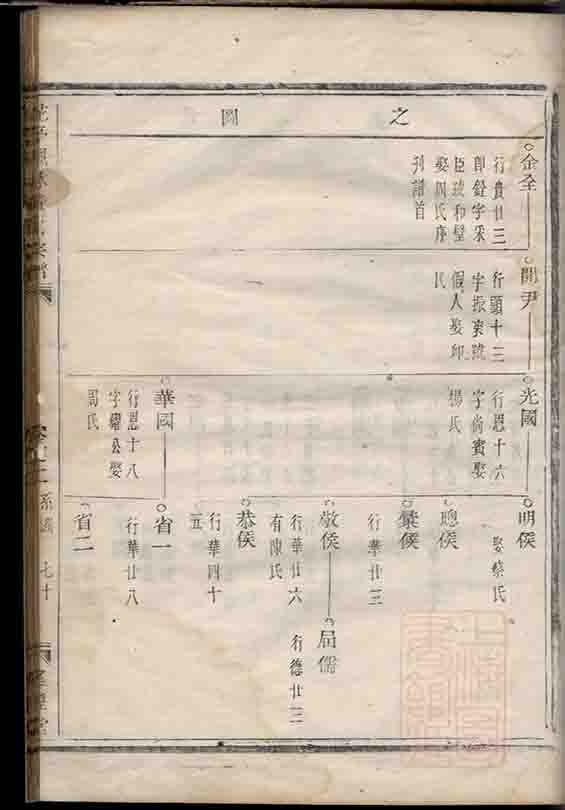 之
圖
金全
行貴廿三
即銓字采
臣琥和璧
娶周氏序
刊譜首
開尹
行頭十三
字振寰號
假人娶邱
氏
光國
行恩十六
字尚賓娶
楊氏
華國
行恩十八
字耀公娶
周氏
明侯
娶蔡氏
聰侯
行華廿三
敬侯
行華廿六
有陳氏
局儒
行德廿三
恭侯
行華四十
五
省一
行華廿八
省二
系圖
七十